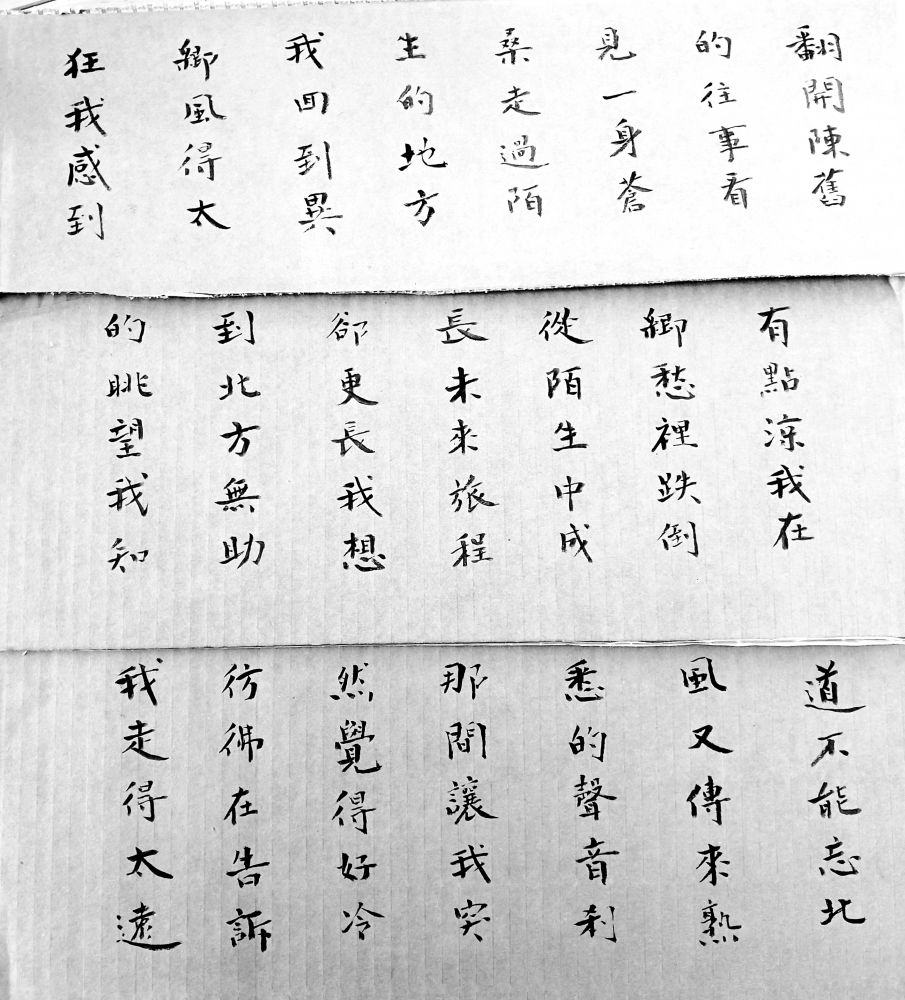 翻開陳舊
的往事看
見一身蒼
桑走過陌
生的地方
我回到異
鄉風得太
狂我感到
有點涼我在
鄉愁裡跌倒
從陌生中成
長未來旅程
卻更長我想
到北方無助
的眺望我知
道不能忘北
風又傳來熟
悉的聲音剎
那間讓我突
然覺得好冷
彷彿在告訴
我走得太遠